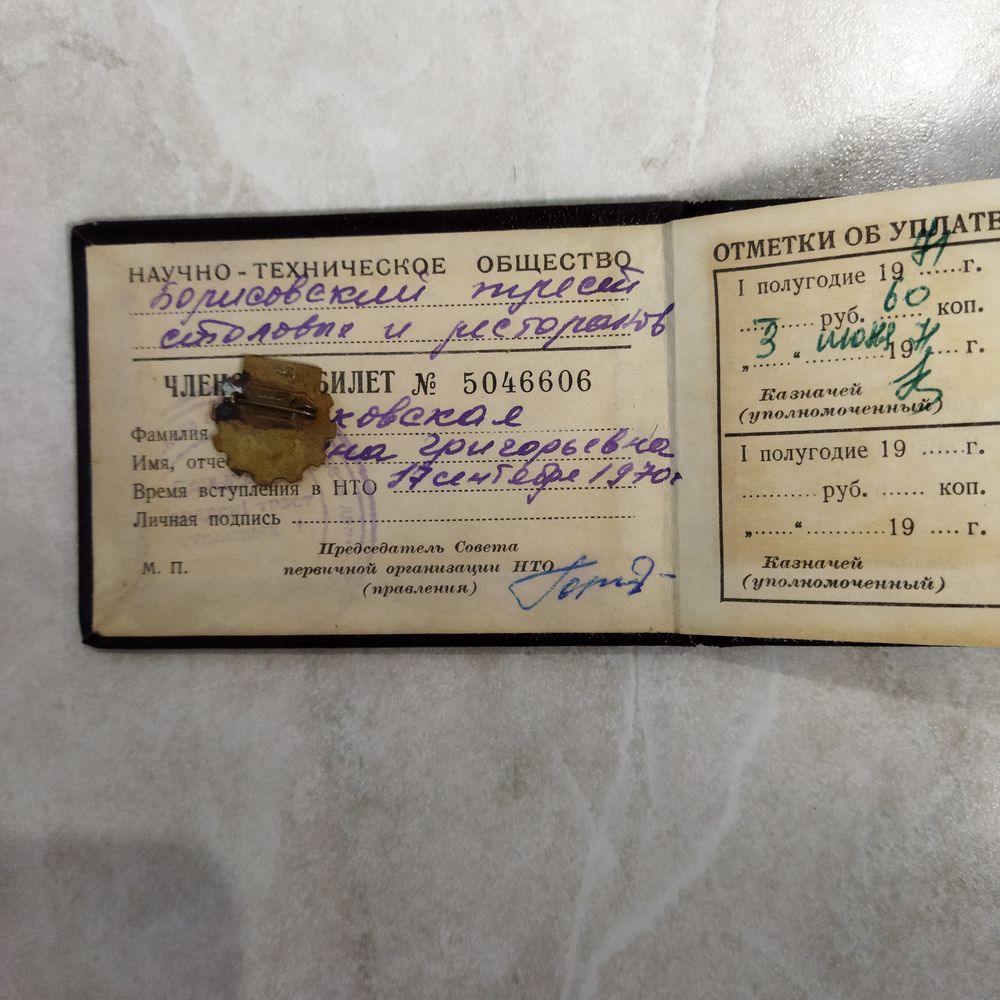 НАУЧНО-ТЕХНИЧЕСКОЕ ОБЩЕСТВО
Борисовский трест
столовых и ресторанов
ЧЛЕН БИЛЕТ № 5046606
Фамилия ковская
Имя, отче на Григорьевна
Время вступления в НТО 17 сентября 1970г
Личная подпись
Председатель Совета
М. П. первичной организации НТО
(правления)
ОТМЕТКИ ОБ УПЛАТЕ
I полугодие 19 71 г.
руб. 60 коп.
„3“ июня 1971 г.
Казначей
(уполномоченный)
I полугодие 19 г.
руб. коп.
„ “ 19 г.
Казначей
(уполномоченный)